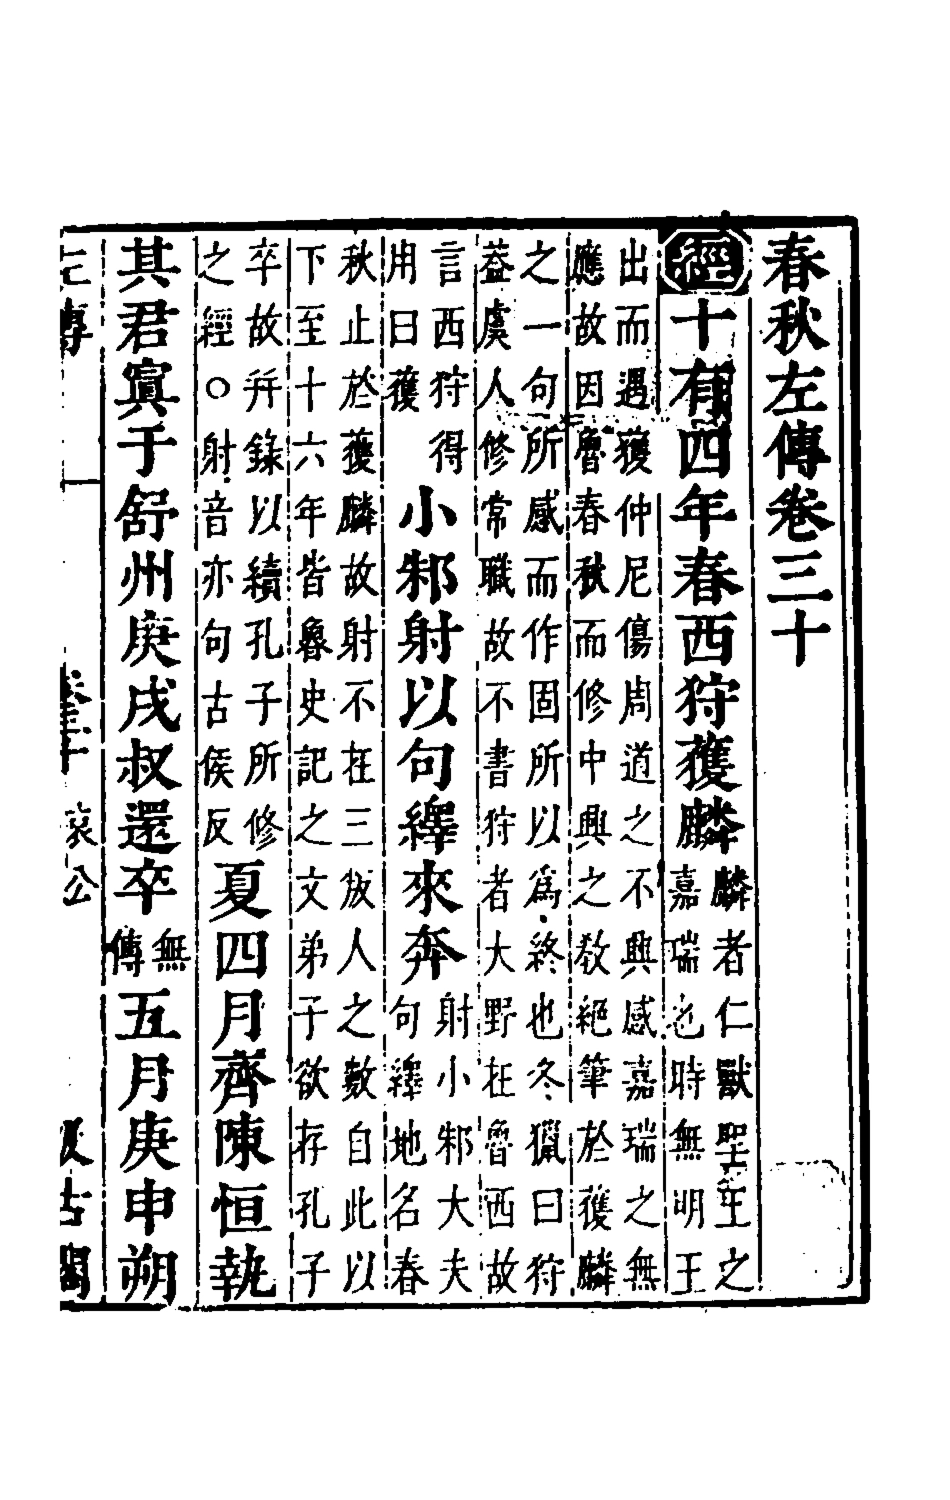 春秋左傳卷三十
經十有四年春西狩獲麟麟者仁獸聖王之嘉瑞也時無明王
出而遇獲仲尼傷周道之不興感嘉瑞之無
應故因魯春秋而修中興之教絕筆於獲麟
之一句所感而作固所以爲終也冬獵曰狩
葢虞人修常職故不書狩者大野在魯西故
言西狩得用曰獲小邾射以句繹來奔射小邾大夫句繹地名春
秋止於獲麟故射不在三叛人之數自此以
下至十六年皆魯史記之文弟子欲存孔子
卒故幷錄以續孔子所修之經○射音亦句古侯反夏四月齊陳恒執
其君寘于舒州庚戌叔還卒無傳五月庚申朔
左傳 卷三十 哀公 汲古閣